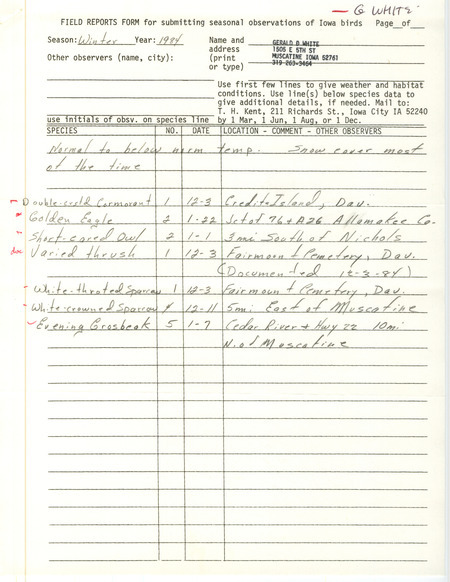 — G WHITE
FIELD REPORTS FORM for submitting seasonal observations of Iowa birds Page__of__
Season: Winter Year: 1984 Name and address (print or type) GERALD D WHITE
1505 E 5TH ST
MUSCATINE IOWA 52761
319-263-3464
Other observers (name, city):
Use first few lines to give weather and habitat
conditions. Use line(s) below species data to
give additional details, if needed. Mail to:
T. H. Kent, 211 Richards St., Iowa City IA 52240
use initials of obsv. on species line by 1 Mar, 1 Jun, 1 Aug, or 1 Dec.
SPECIES NO. DATE LOCATION - COMMENT - OTHER OBSERVERS
Normal to below norm temp. Snow cover most
of the time
Double-crstd Cormorant 1 12-3 Credit Island, Dav.
Golden Eagle 2 1-22 Jct of 76 + A26 Allamakee Co.
Short-eared Owl 2 1-1 3mi South of Nichols
doc Varied thrush 1 12-3 Fairmount Cemetery, Dav.
(Documented 12-3-84)
White-throted Sparrow 1 12-3 Fairmount Cemetery, Dav.
White-crowned Sparrow 4 12-11 5mi East of Muscatine
Evening Grosbeak 5 1-7 Cedar River + Hwy 22 10mi
N. of Muscatine